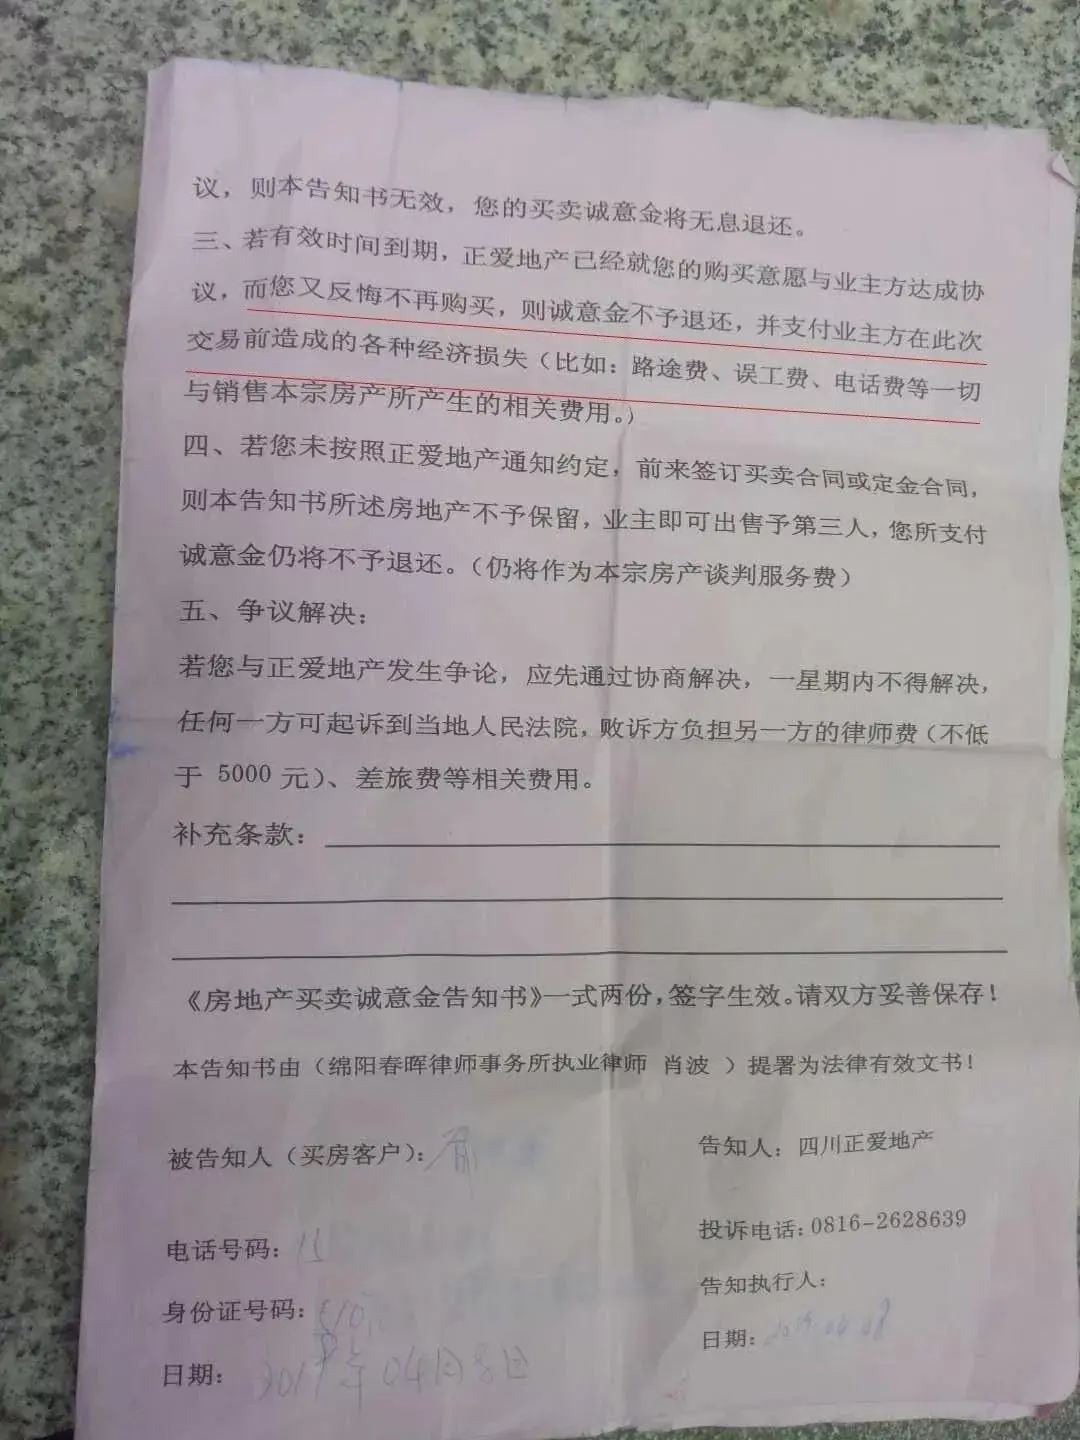 议，则本告知书无效，您的买卖诚意金将无息退还。
三、若有效时间到期，正爱地产已经就您的购买意愿与业主方达成协
议，而您又反悔不再购买，则诚意金不予退还，并支付业主方在此次
交易前造成的各种经济损失（比如：路途费、误工费、电话费等一切
与销售本宗房产所产生的相关费用。）
四、若您未按照正爱地产通知约定，前来签订买卖合同或定金合同，
则本告知书所述房地产不予保留，业主即可出售予第三人，您所支付
诚意金仍将不予退还。（仍将作为本宗房产谈判服务费）
五、争议解决：
若您与正爱地产发生争论，应先通过协商解决，一星期内不得解决，
任何一方可起诉到当地人民法院，败诉方负担另一方的律师费（不低
于 5000 元）、差旅费等相关费用。
补充条款：
《房地产买卖诚意金告知书》一式两份，签字生效。请双方妥善保存！
本告知书由（绵阳春晖律师事务所执业律师 肖波 ）提署为法律有效文书！
被告知人（买房客户）：
告知人：四川正爱地产
电话号码：
投诉电话：0816-2628639
身份证号码：510
告知执行人：
日期：2019年04月8日
日期：2019.04.08